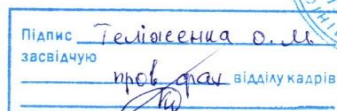 Підпис Теліженка О.М.
засвідчую
пров. фах відділу кадрів